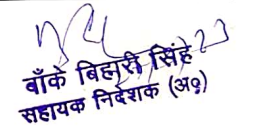 बाँके बिहारी सिंह
सहायक निदेशक (अ०)